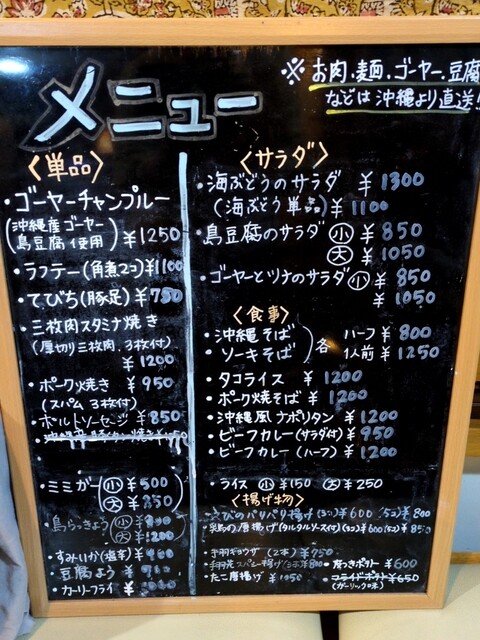 ※お肉.麺.ゴーヤー.豆腐
などは沖縄より直送!
メニュー
〈単品〉
・ゴーヤーチャンプルー
(沖縄産ゴーヤー
島豆腐使用) ¥1250
・ラフテー(角煮2コ) ¥1100
・てびち(豚足) ¥750
・三枚肉スタミナ焼き
(厚切り三枚肉、3枚付)
¥1200
・ポーク焼き ¥950
(スパム3枚付)
・ポルトソーセージ ¥850
・ミミガー 小 ¥500
大 ¥850
・島らっきょう 小
大 ¥1200
・すみいか(塩辛) ¥960
・豆腐よう
・カーリーフライ ¥
〈サラダ〉
・海ぶどうのサラダ ¥1300
(海ぶどう単品) ¥1100
・島豆腐のサラダ 小 ¥850
大 ¥1050
・ゴーヤとツナのサラダ 小 ¥850
¥1050
〈食事〉
・沖縄そば
・ソーキそば
各 ハーフ ¥800
1人前 ¥1250
・タコライス ¥1200
・ポーク焼きそば ¥1200
・沖縄風ナポリタン ¥1200
・ビーフカレー(サラダ付) ¥950
・ビーフカレー(ハーフ) ¥1200
・ライス 小 ¥150 大 ¥250
〈揚げ物〉
・えびのパリパリ揚げ ¥600 ¥800
・鶏の唐揚げ(タルタルソース付) ¥600 ¥850
・手羽ギョウザ (2本) ¥750
・たこ唐揚げ ¥1050
・皮つきポテト ¥600
・フライドポテト ¥650
(ガーリック味)